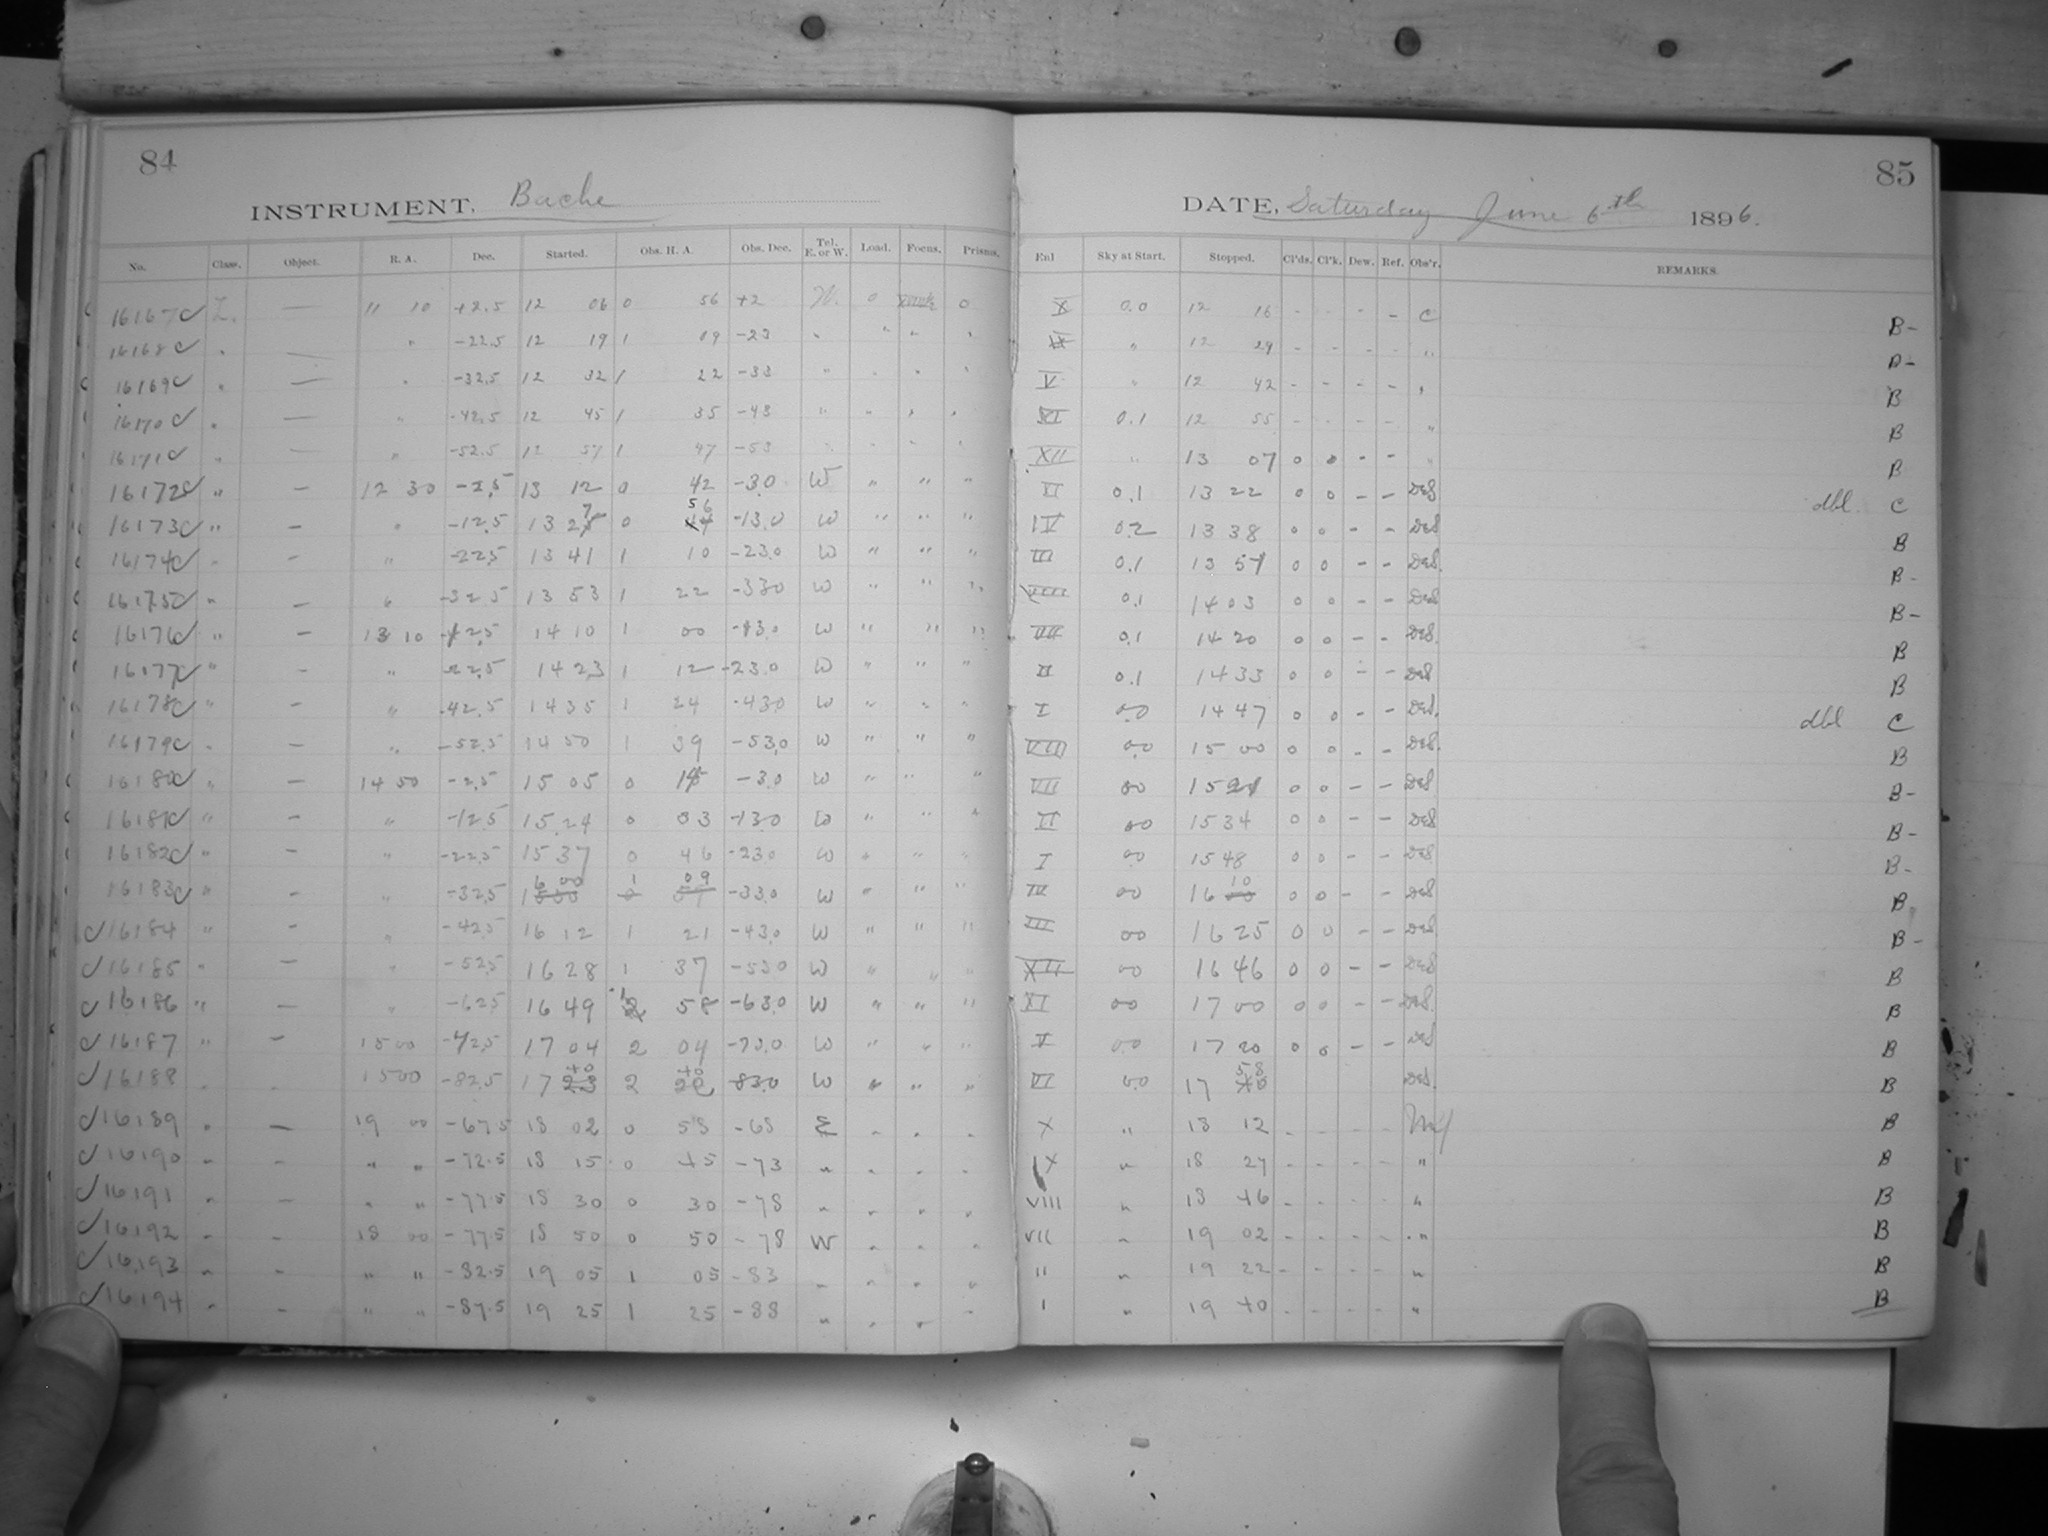 84
INSTRUMENT, Bache
No. Class. Object. R. A. Dec. Started. Obs. H. A. Obs. Dec. Tel. E. or W. Load. Focus. Prisms.
16167 L. — 11 10 +2.5 12 06 0 56 +2 W. 0 0
16168 " — " -22.5 12 19 1 09 -23 " " " "
16169 " — " -32.5 12 32 1 22 -33 " " " "
16170 " — " -42.5 12 45 1 35 -43 " " " "
16171 " — " -52.5 12 57 1 47 -53 " " " "
16172 " — 12 30 -2.5 13 12 0 42 -3.0 W " " "
16173 " — " -12.5 13 27 0 56 -13.0 W " " "
16174 " — " -22.5 13 41 1 10 -23.0 W " " "
16175 " — " -32.5 13 53 1 22 -33.0 W " " "
16176 " — 13 10 -12.5 14 10 1 00 -13.0 W " " "
16177 " — " -22.5 14 23 1 12 -23.0 W " " "
16178 " — " -42.5 14 35 1 24 -43.0 W " " "
16179 " — " -52.5 14 50 1 39 -53.0 W " " "
16180 " — 14 50 -2.5 15 05 0 15 -3.0 W " " "
16181 " — " -12.5 15 24 0 33 -13.0 W " " "
16182 " — " -22.5 15 37 0 46 -23.0 W " " "
16183 " — " -32.5 16 00 1 09 -33.0 W " " "
16184 " — " -42.5 16 12 1 21 -43.0 W " " "
16185 " — " -52.5 16 28 1 37 -53.0 W " " "
16186 " — " -62.5 16 49 1 58 -63.0 W " " "
16187 " — 15 00 -72.5 17 04 2 04 -73.0 W " " "
16188 15 00 -82.5 17 40 2 40 -83.0 W " " "
16189 " — 19 00 -67.5 18 02 0 58 -68 E " " "
16190 " - " " -72.5 18 15 0 45 -73 " " " "
16191 " - " " -77.5 18 30 0 30 -78 " " " "
16192 " - 18 00 -77.5 18 50 0 50 -78 W " " "
16193 " - " " -82.5 19 05 1 05 -83 " " " "
16194 " - " " -87.5 19 25 1 25 -88 " " " -
85
DATE, Saturday June 6th 1896.
Enl Sky at Start. Stopped. Cl'ds. Cl'k. Dew. Ref. Obs'r. REMARKS.
X 0.0 12 16 - - - - C B-
IX " 12 29 - - - - " B-
V " 12 42 - - - - " B
XI 0.1 12 55 - - - - " B
XII " 13 07 0 0 - - " B
VI 0.1 13 22 0 0 - - DeS dbl. C
IV 0.2 13 38 0 0 - - DeS B
III 0.1 13 51 0 0 - - DeS. B-
VIII 0.1 14 03 0 0 - - DeS B-
VII 0.1 14 20 0 0 - - DeS. B
II 0.1 14 33 0 0 - - DeS B
I 0.0 14 47 0 0 - - DeS. dbl C
VIII 0.0 15 00 0 0 - - DeS. B
VII 00 15 21 0 0 - - DeS B-
II 00 15 34 0 0 - - DeS B-
I 00 15 48 0 0 - - DeS B-
IV 00 16 10 0 0 - - DeS B
III 00 16 25 0 0 - - DeS B-
XII 00 16 46 0 0 - - DeS B
XI 00 17 00 0 0 - - DeS. B
V 00 17 20 0 0 - - DeS B
VI 0.0 17 58 DeS. B
X " 13 12 - - - - B
IX " 18 27 - - - - " B
VIII " 18 46 - - - - " B
VII " 19 02 - - - - " B
II " 19 22 - - - - " B
I " 19 40 - - - - " B